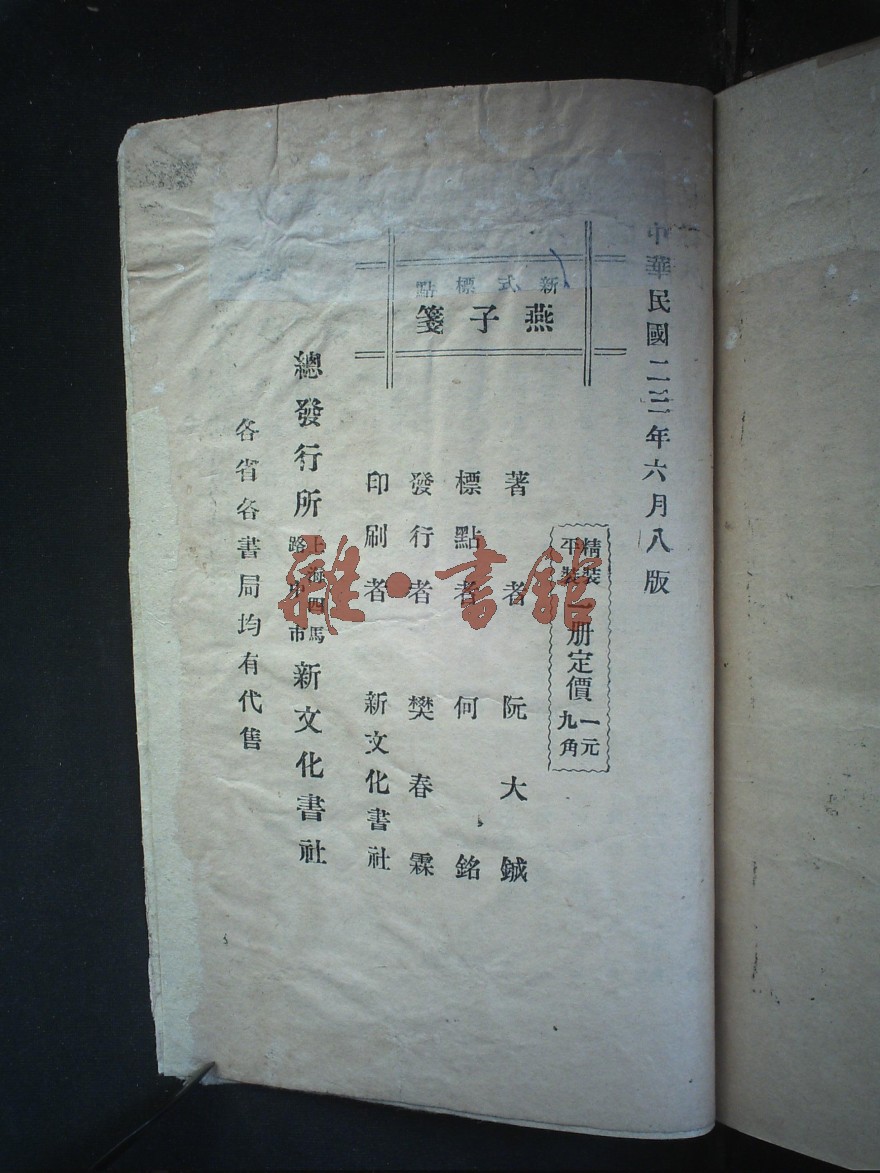 中華民國二三年六月八版
新式標點
燕子箋
精裝
平裝
一册定價
一元
九角
著者 阮大鋮
標點者 何銘
發行者 樊春霖
印刷者 新文化書社
總發行所 上海四馬路中市 新文化書社
各省各書局均有代售
雜·書館